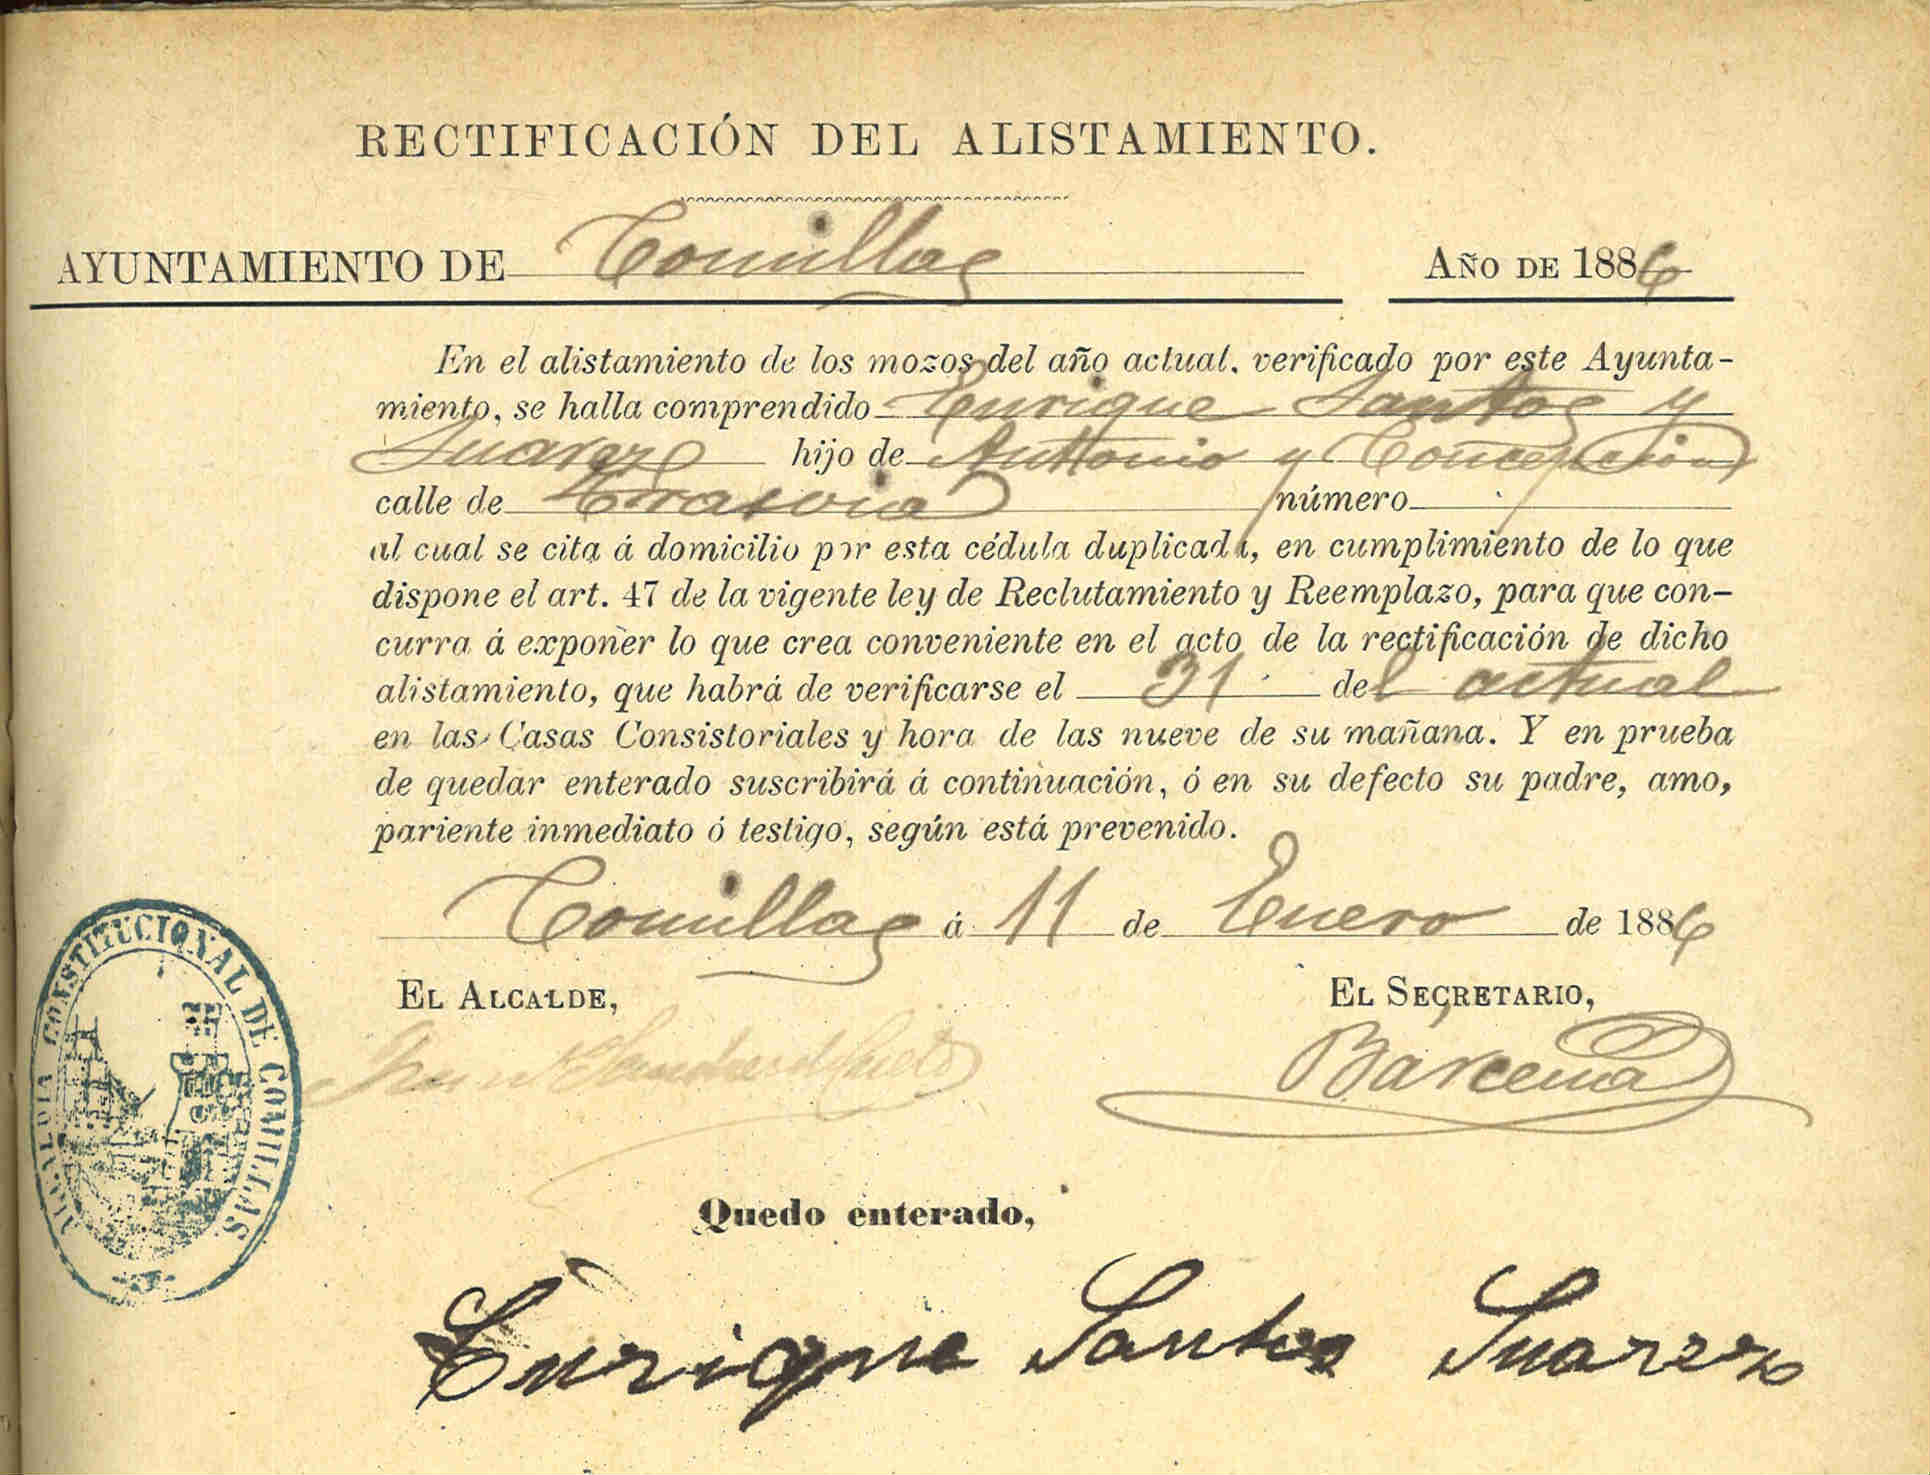 RECTIFICACIÓN DEL ALISTAMIENTO.
AYUNTAMIENTO DE Comillas AÑO DE 1886
En el alistamiento de los mozos del año actual, verificado por este Ayunta-
miento, se halla comprendido Enrique Santos y
Suarez hijo de Antonio y Concepción
calle de Trasvia número
al cual se cita á domicilio por esta cédula duplicada, en cumplimiento de lo que
dispone el art. 47 de la vigente ley de Reclutamiento y Reemplazo, para que con-
curra á exponer lo que crea conveniente en el acto de la rectificación de dicho
alistamiento, que habrá de verificarse el 31 del actual
en las Casas Consistoriales y hora de las nueve de su mañana. Y en prueba
de quedar enterado suscribirá á continuación, ó en su defecto su padre, amo,
pariente inmediato ó testigo, según está prevenido.
Comillas á 11 de Enero de 1886
EL ALCALDE, EL SECRETARIO,
Barcena
ALCALDIA CONSTITUCIONAL DE COMILLAS
Quedo enterado,
Enrique Santos Suarez